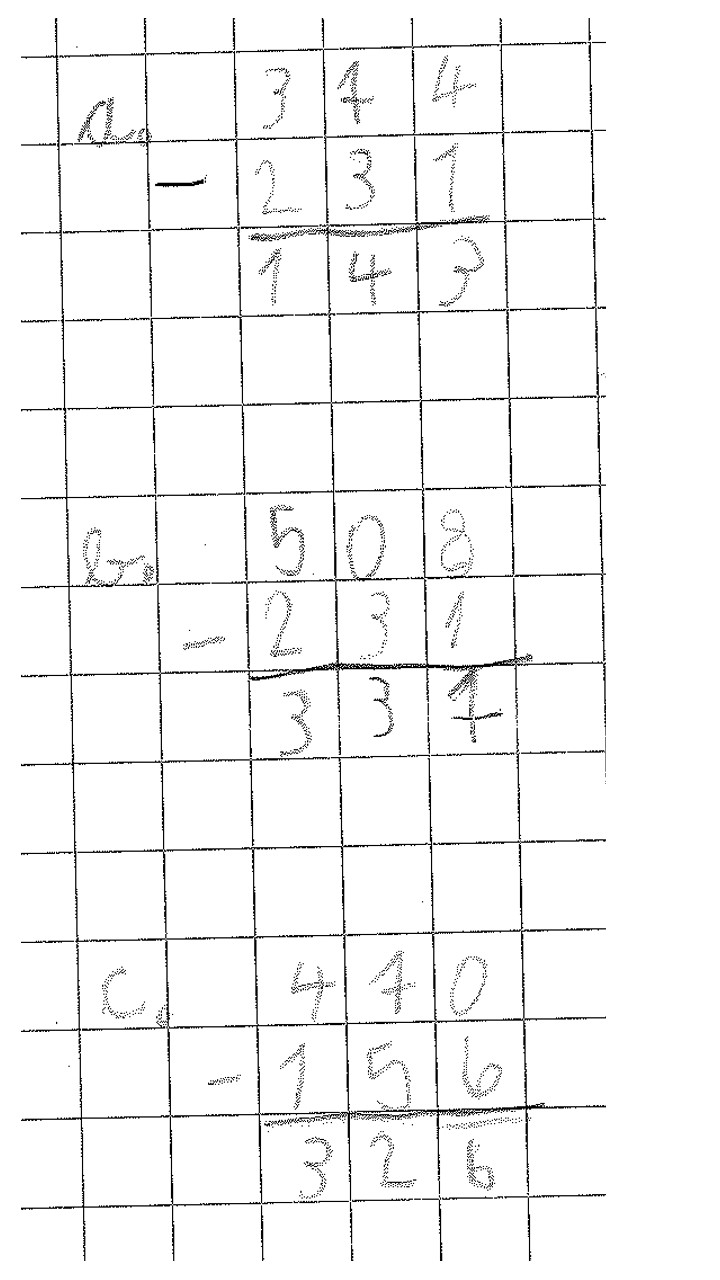 a. 3 7 4
- 2 3 1
1 4 3
b. 5 0 8
- 2 3 1
3 3 7
c. 4 7 0
- 1 5 6
3 2 6